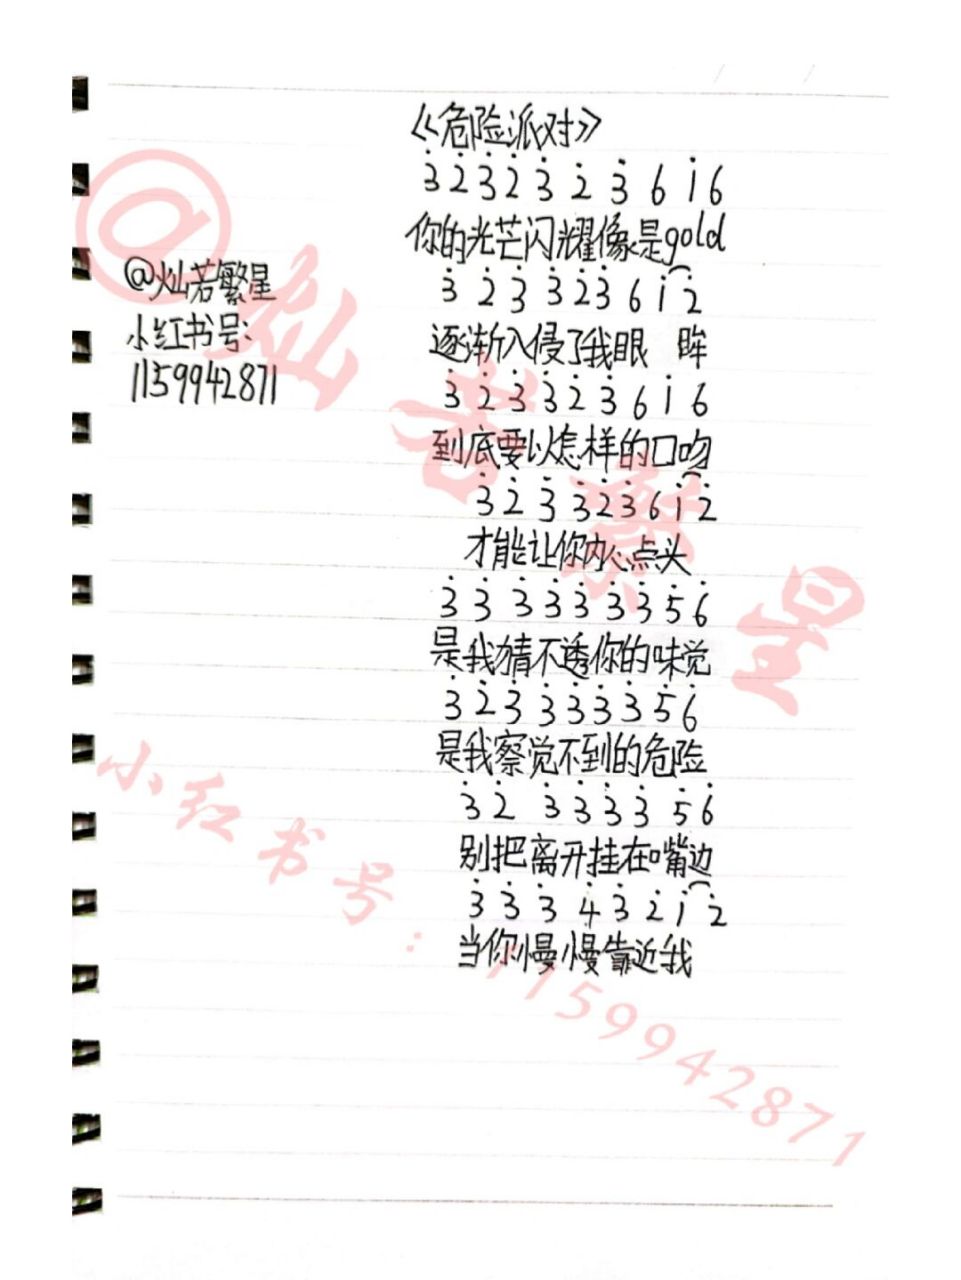 《危险派对》
3̇ 2̇ 3̇ 2̇ 3̇ 2̇ 3̇ 6 1̇ 6
你的光芒闪耀像是gold
3̇ 2̇ 3̇ 3̇ 2̇ 3̇ 6 1̇ 2̇
逐渐入侵了我眼 眸
3̇ 2̇ 3̇ 3̇ 2̇ 3̇ 6 1̇ 6
到底要以怎样的口吻
3̇ 2̇ 3̇ 3̇ 2̇ 3̇ 6 1̇ 2̇
才能让你内心点头
3̇ 3̇ 3̇ 3̇ 3̇ 3̇ 3̇ 5̇ 6̇
是我猜不透你的味觉
3̇ 2̇ 3̇ 3̇ 3̇ 3̇ 3̇ 5̇ 6̇
是我察觉不到的危险
3̇ 2̇ 3̇ 3̇ 3̇ 3̇ 5̇ 6̇
别把离开挂在嘴边
3̇ 3̇ 3̇ 4̇ 3̇ 2̇ 1̇ 2̇
当你慢慢靠近我
@灿若繁星
小红书号:
1159942871
@灿若繁星
小红书号:1159942871